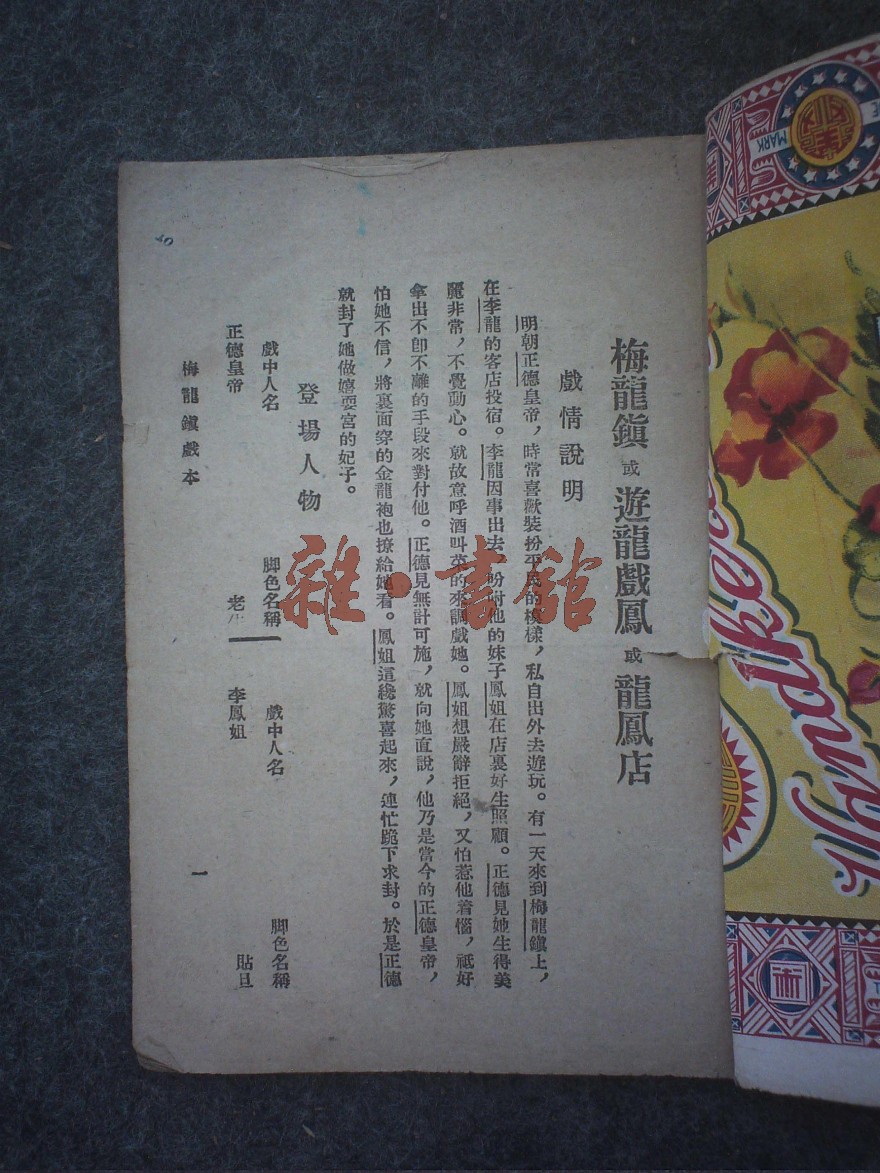 梅龍鎭 或 遊龍戲鳳 或 龍鳳店
戲情說明
明朝正德皇帝，時常喜歡裝扮平民的模樣，私自出外去遊玩。有一天來到梅龍鎭上，
在李龍的客店投宿。李龍因事出去，吩咐他的妹子鳳姐在店裏好生照顧。正德見她生得美
麗非常，不覺動心。就故意呼酒叫菜的來調戲她。鳳姐想嚴辭拒絕，又怕惹他着惱，祗好
拿出不卽不離的手段來對付他。正德見無計可施，就向她直說，他乃是當今的正德皇帝，
怕她不信，將裏面穿的金龍袍也撩給她看。鳳姐這纔驚喜起來，連忙跪下求封。於是正德
就封了她做嬉耍宮的妃子。
登場人物
戲中人名 脚色名稱 戲中人名 脚色名稱
正德皇帝 老生 李鳳姐 貼旦
梅龍鎭戲本 一
雜·書館
MARK
術